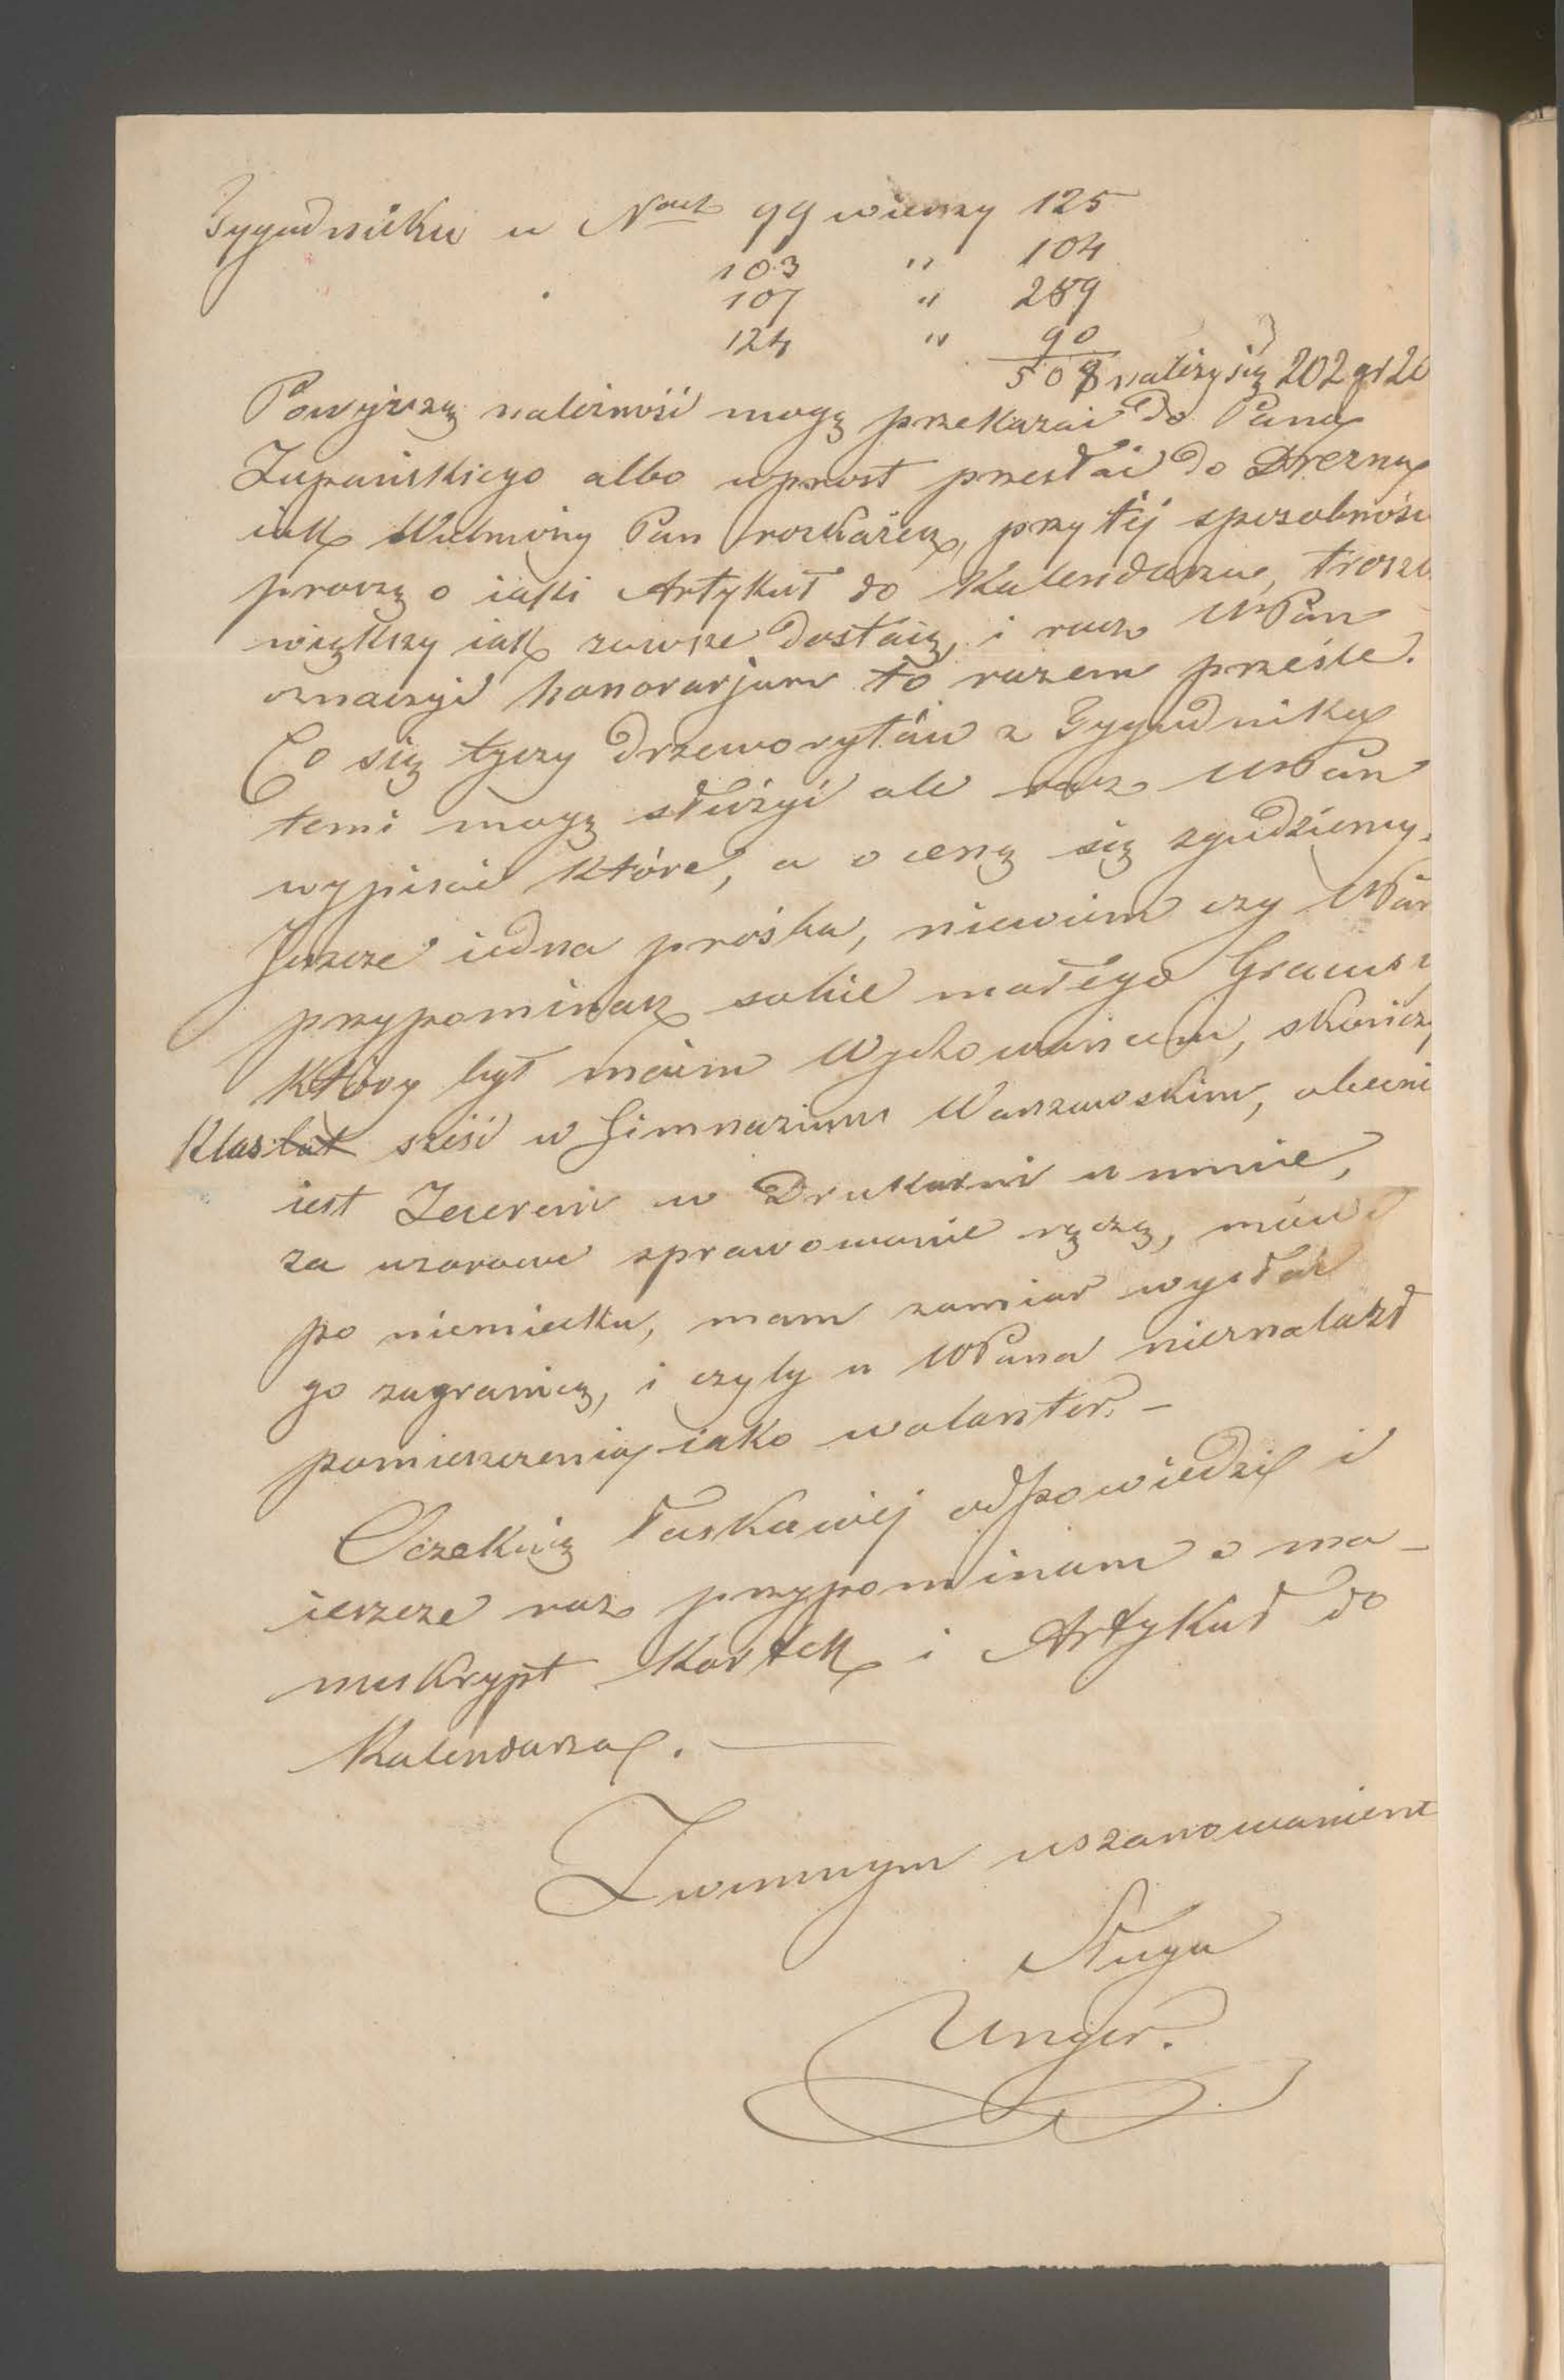 Tygodniku w Nach 99 wierszy 125
103 " 104
107 " 289
124 " 90
508 należy się 202 gr 20
Powyższą należność mogę przekazać do Pana
Żupańskiego albo wprost przesłać do Drezna
iak Wielmożny Pan rozkażesz, przy tej sposobności
proszę o iaki Artykuł do Kalendarza, troszk
większy iak zawsze dostaię, i racz WPan
oznaczyć honorarjum to razem prześle.
Co się tyczy drzeworytów z Tygodnika
temi mogę służyć ale racz WPan
wypisać które, a o cenę się zgodziemy.
Jeszcze iedna prośba, niewiem czy WPan
przypominasz sobie małego
który był moim Wychowańcem, skończy
Klas sześć w Gimnazium Warszawskim, obecni
iest Zecerem w Drukarni u mnie,
za wzorowe sprawowanie ręczę, mówi
po niemiecku, mam zamiar wysłać
go zagranicę, i czyby u WPana nieznalazł
pomieszczenia iako wolonter. –
Oczekuię łaskawej odpowiedzi i
ieszcze raz przypominam o ma-
nuskrypt Kartek i Artykuł do
Kalendarza. —
Z winnym uszanowaniem
Sługa
Unger.